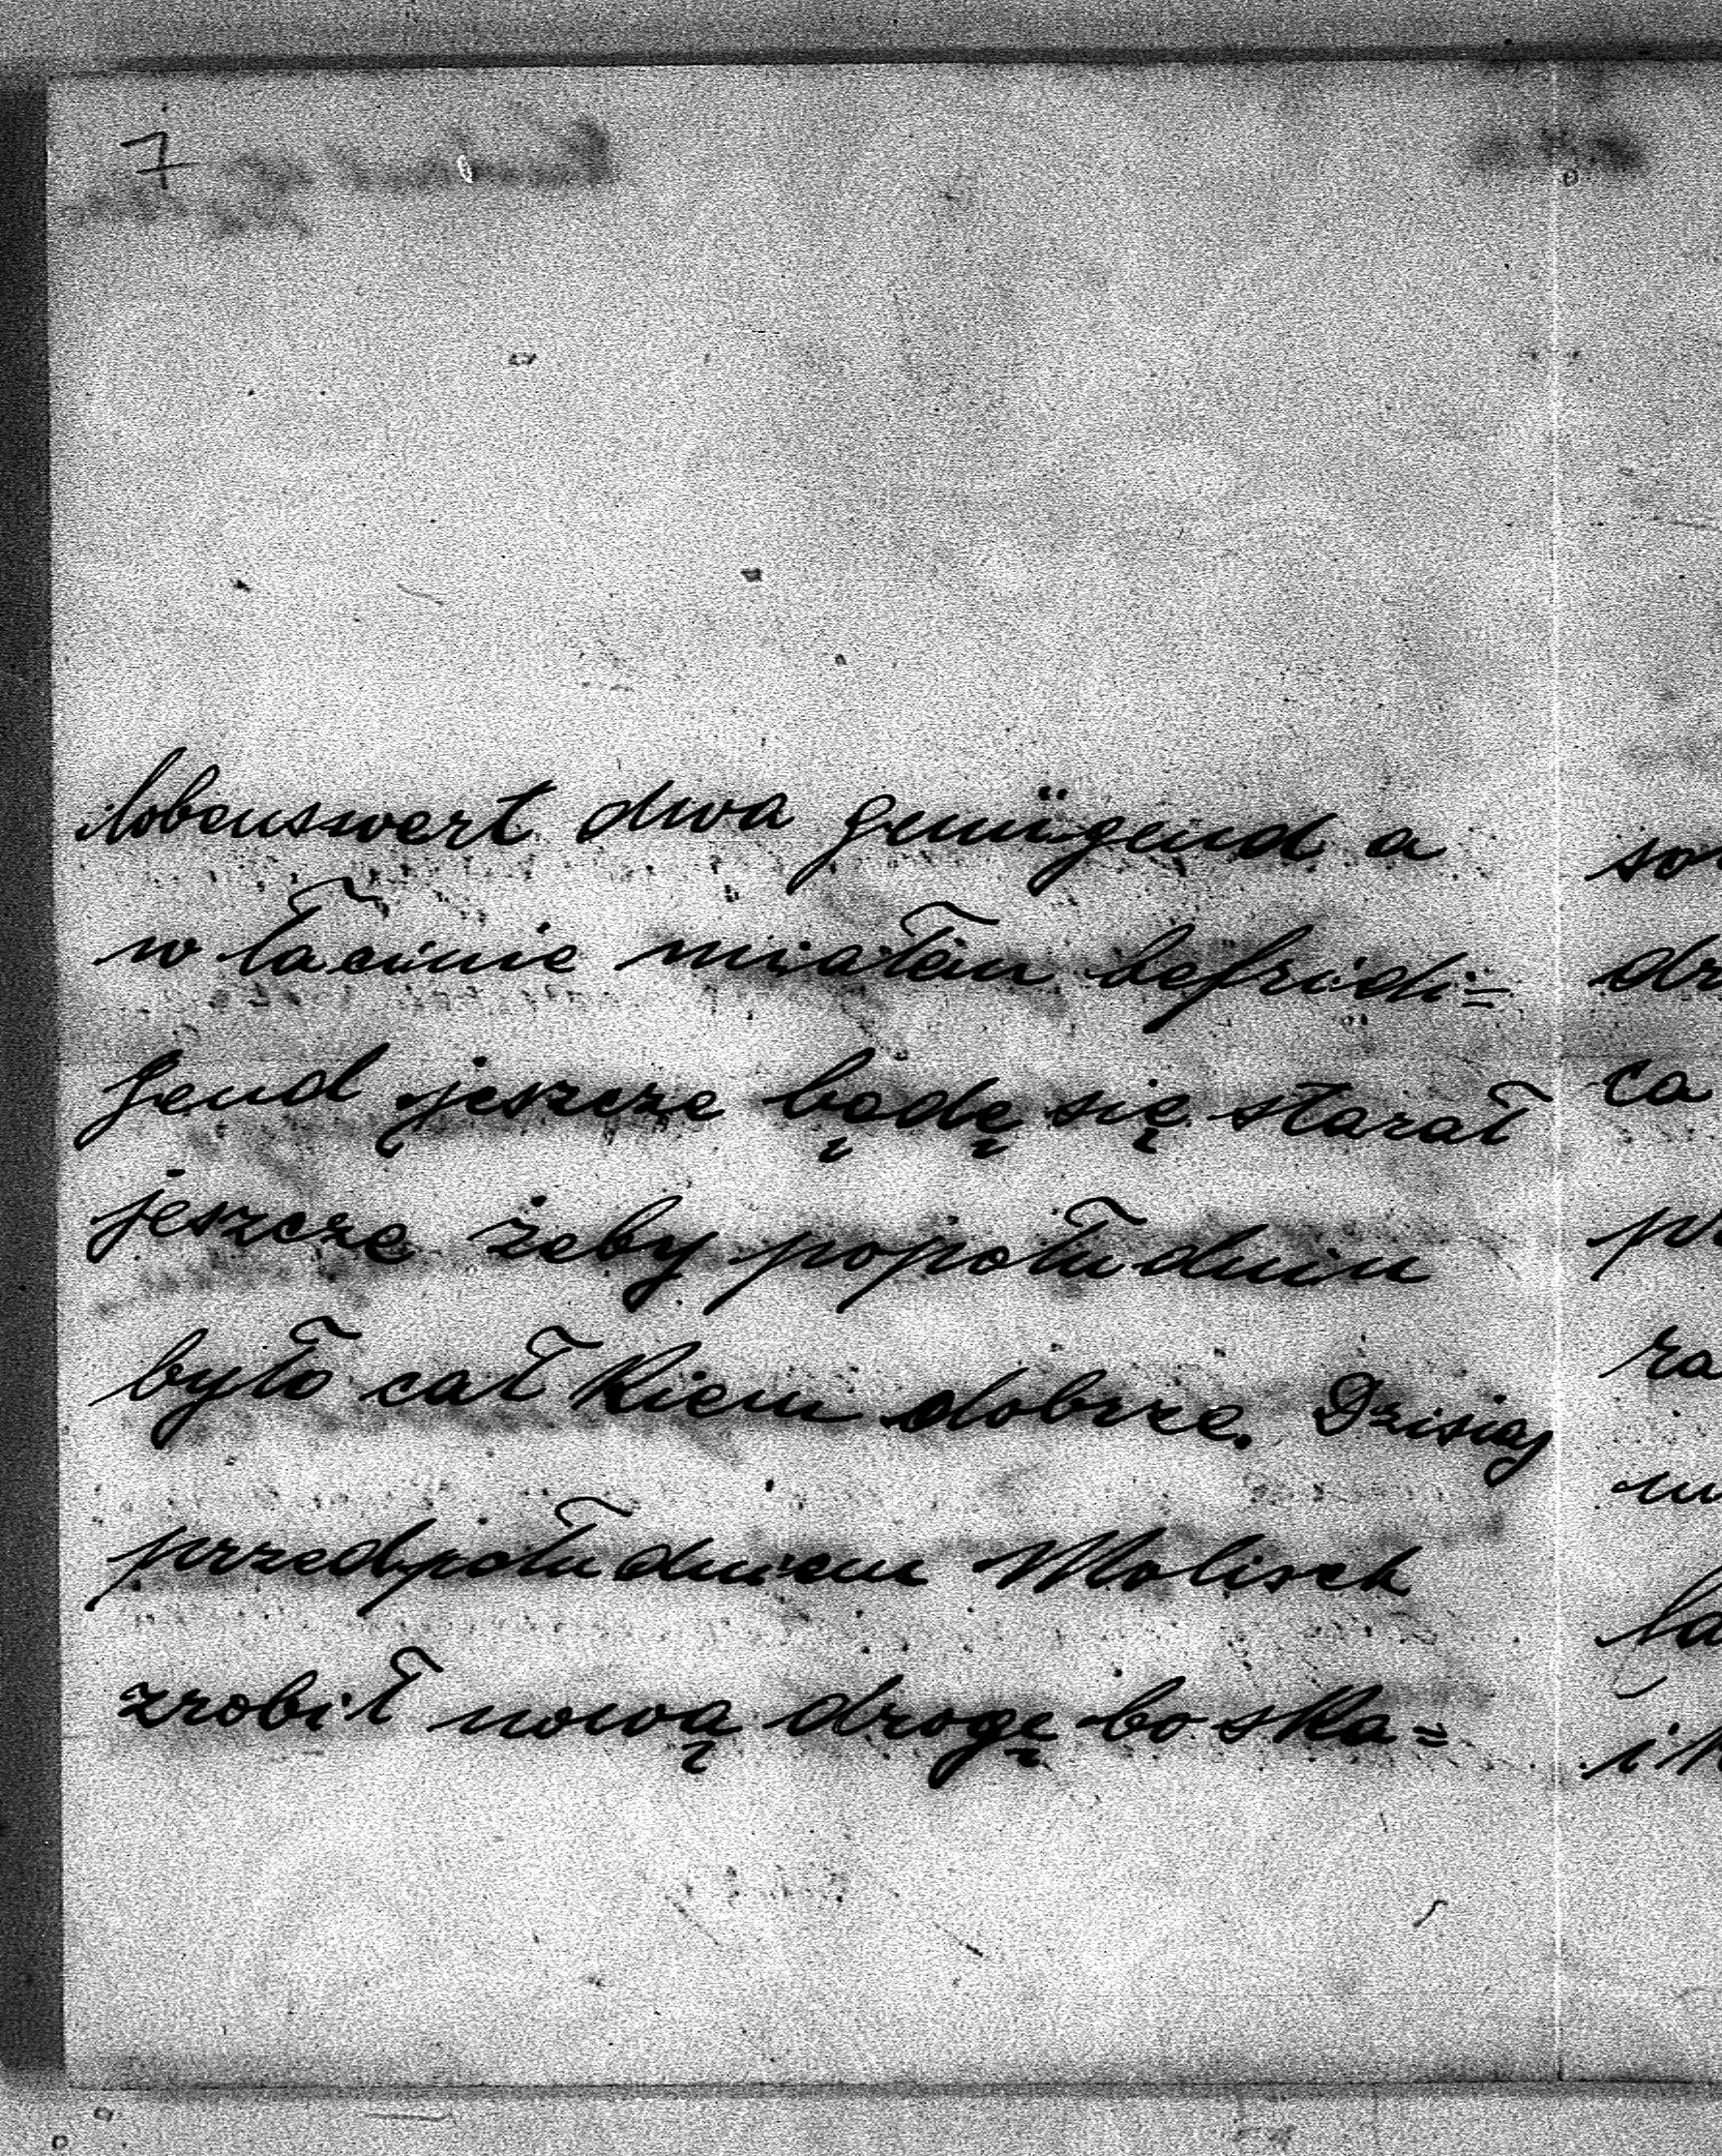 7
lobenswert dwa genügend a
w łacinie miałem befriedi=
gend jeszcze bądę się starał
jeszcze żeby popołudniu
było całkiem dobrze. Dzisiaj
przedpołudniem Molisch
zrobił nową drogę bo ska=